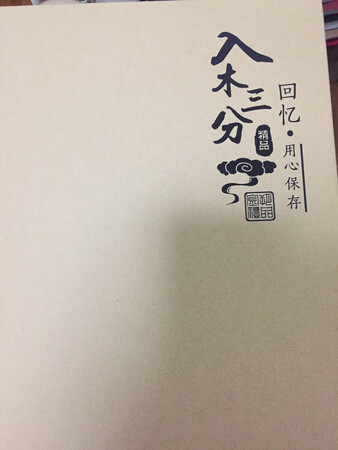 入木三分
精品
回忆·用心保存